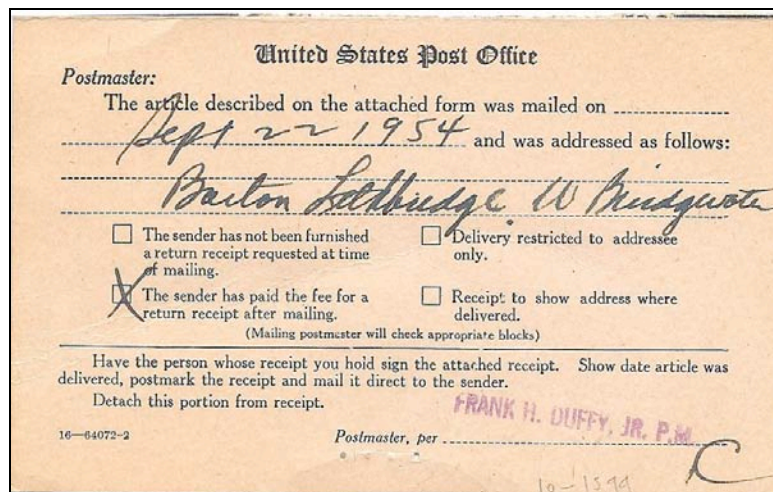 United States Post Office
Postmaster:
The article described on the attached form was mailed on
Sept 22 1954 and was addressed as follows:
Barton W Bridgwater
The sender has not been furnished a return receipt requested at time of mailing.
Delivery restricted to addressee only.
X The sender has paid the fee for a return receipt after mailing.
Receipt to show address where delivered.
(Mailing postmaster will check appropriate blocks)
Have the person whose receipt you hold sign the attached receipt. Show date article was
delivered, postmark the receipt and mail it direct to the sender.
Detach this portion from receipt.
FRANK H. DUFFY, JR. P.M.
16—64072-2
Postmaster, per
C